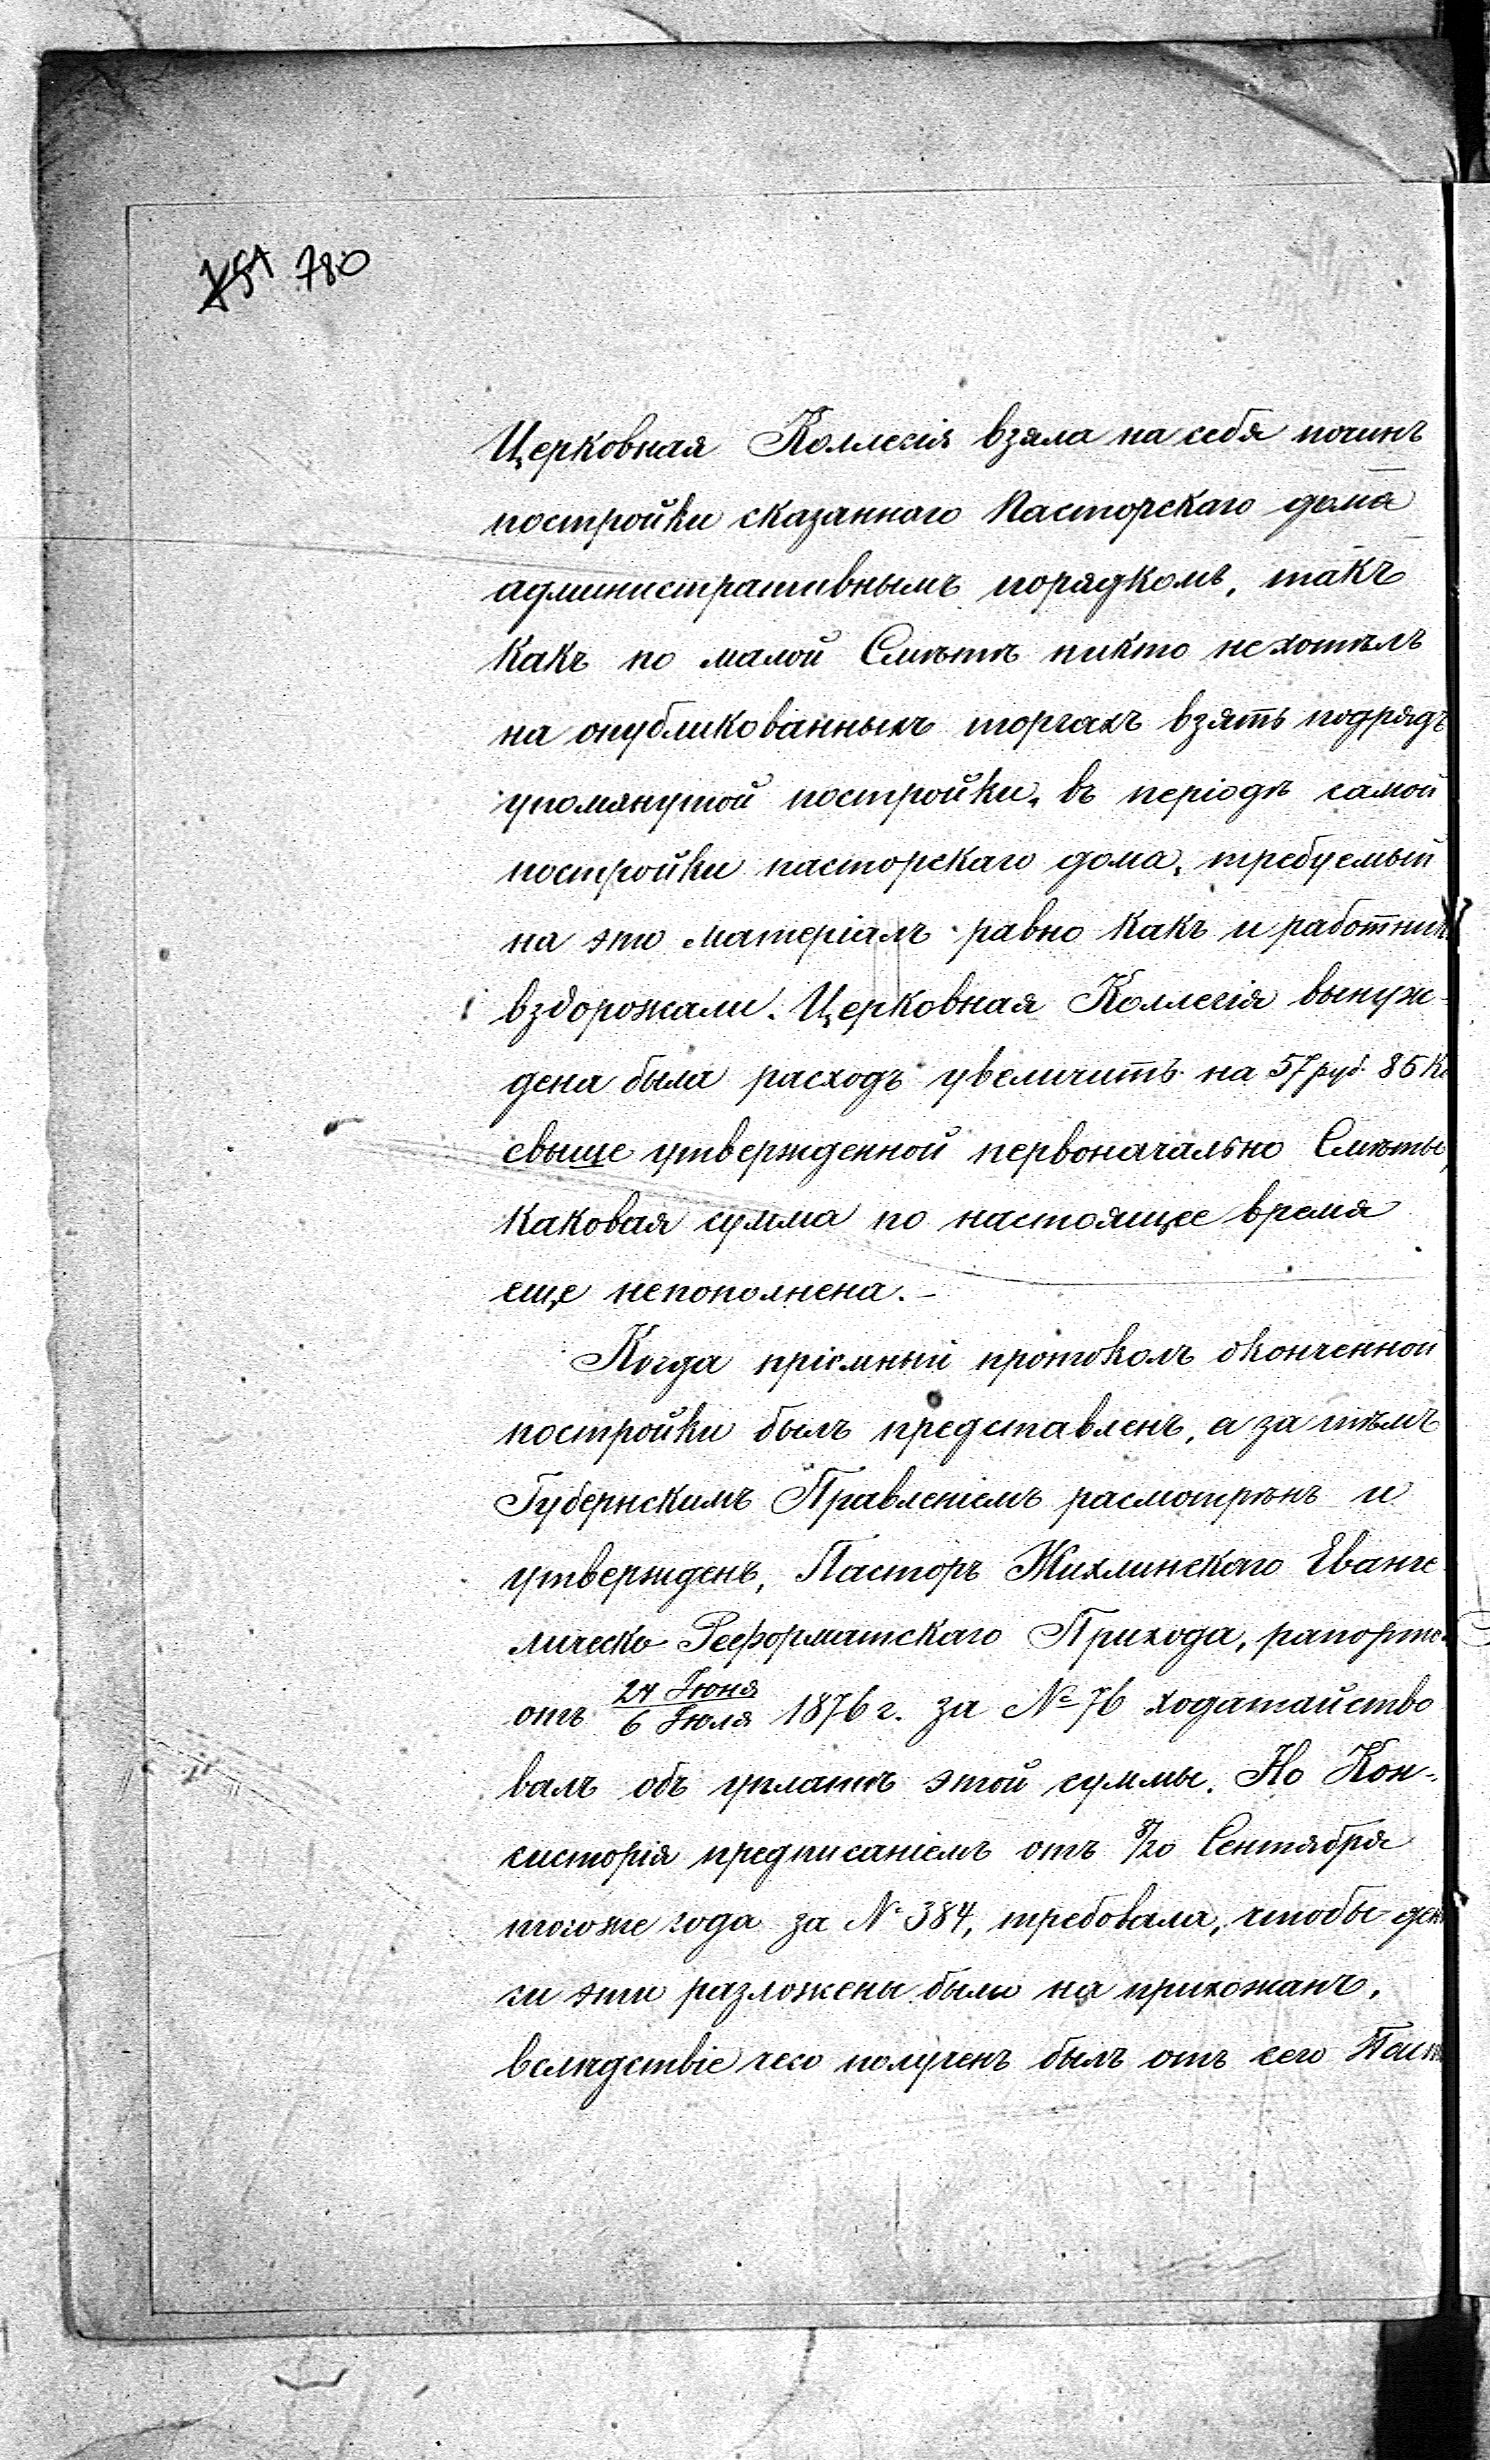 780
Церковная Коллегія взяла на себя починъ
постройки сказаннаго Пасторскаго дома
административнымъ порядкомъ, такъ
какъ по малой Смѣтѣ никто не хотѣлъ
на опубликованныхъ торгахъ взять подрядъ
упомянутой постройки. въ періодъ самой
постройки пасторскаго дома, требуемый
на это матеріалъ равно какъ и работник
вздорожали. Церковная Коллегія вынуж-
дена была расходъ увеличить на 57 руб. 85 К
свыше утвержденной первоначально Смѣты,
каковая сумма по настоящее время
еще непополнена.-
Когда пріемный протоколъ оконченной
постройки былъ представленъ, а за тѣмъ
Губернскимъ Правленіемъ расмотрѣнъ и
утвержденъ, Пасторъ Жихлинскаго Еванге
лическо-Реформатскаго Прихода, рапорто
отъ 24 Іюня / 6 Іюля 1876 г. за № 76 ходатайство
валъ объ уплатѣ этой суммы. Но Кон-
систорія предписаніемъ отъ 8/20 Сентября
тогоже года за № 384, требовала, чтобы ден
ги эти разложены были на прихожанъ,
вслѣдствіе чего полученъ былъ отъ сего Паст